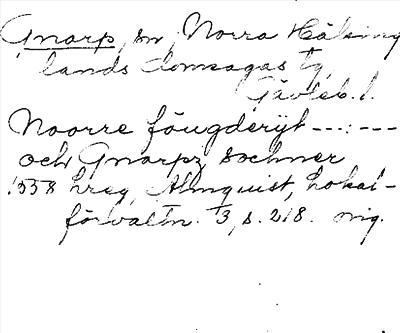 Gnarp, sn, Norra Hälsing
lands domsagas tg,
Gävleb. l.
Noorre föugderijt ---:---
och Gnarpz sochner
1558 hreg, Almquist, Lokal-
förvaltn. T3, s. 218. orig.